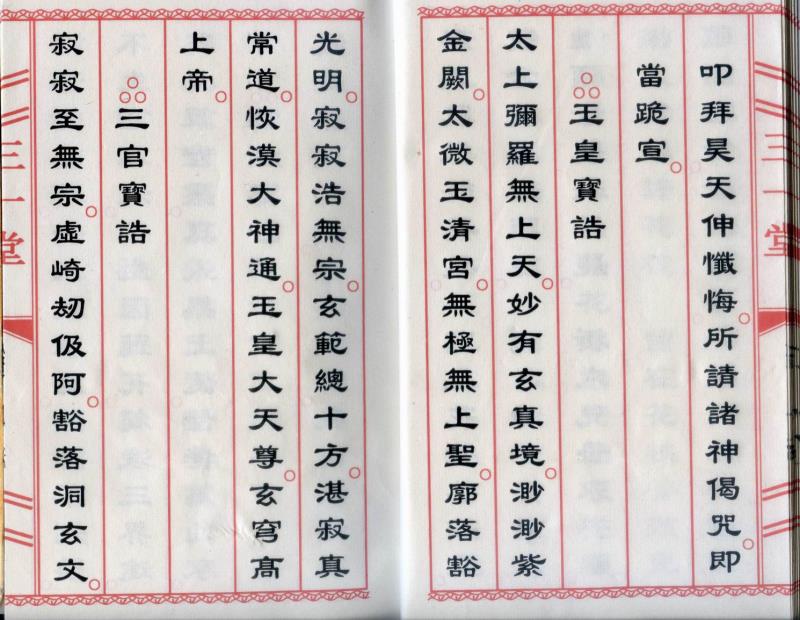 三一堂
叩拜昊天伸懺悔。所請諸神偈咒。即
當跪宣。
玉皇寶誥
太上彌羅無上天。妙有玄真境。渺渺紫
金闕。太微玉清宮。無極無上聖。廓落豁
光明。寂寂浩無宗。玄範總十方。湛寂真
常道。恢漠大神通。玉皇大天尊。玄穹高
上帝。
三官寶誥
寂寂至無宗。虛崎刧伋阿。豁落洞玄文。
三一堂